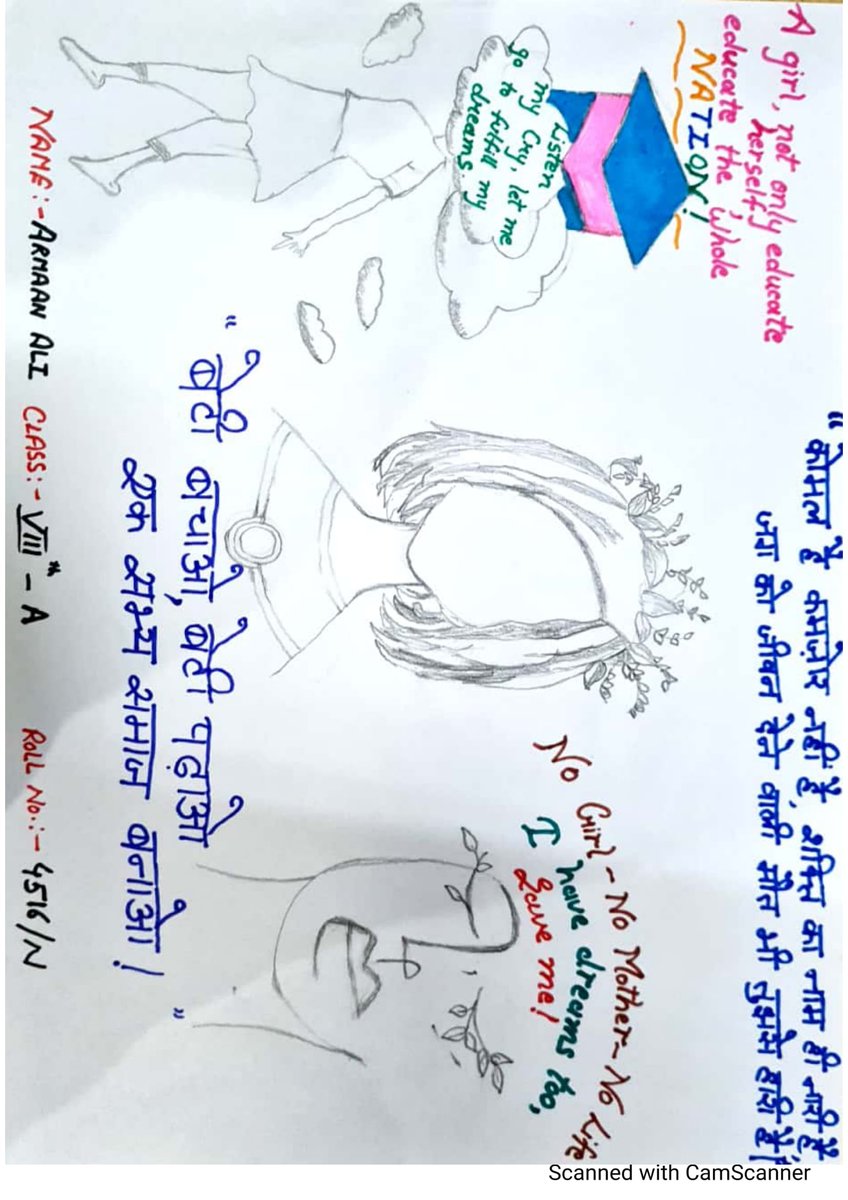 A girl, not only educate
herself,
educate the whole
NATION!
Listen
my Cry, let me
go to fulfill my
dreams
"कोमल है कमज़ोर नहीं है, शक्ति का नाम ही नारी है,
जग को जीवन देने वाली मौत भी तुझसे हारी है।
No Girl - No Mother - No Life
I have dreams too,
Save me!
"बेटी बचाओ, बेटी पढ़ाओ
एक सभ्य समाज बनाओ!"
NAME:- ARMAAN ALI CLASS:- VIIIth - A ROLL NO.:- 4516/N
Scanned with CamScanner